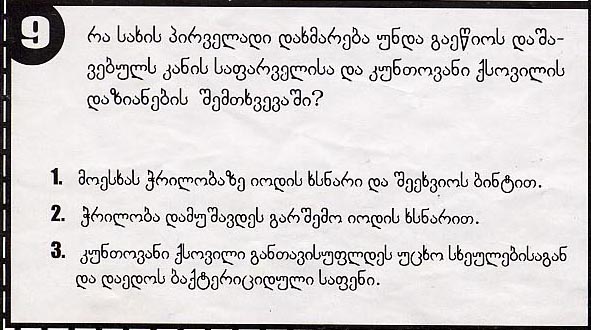 9
რა სახის პირველადი დახმარება უნდა გაეწიოს დაშა-
ვებულს კანის საფარველისა და კუნთოვანი ქსოვილის
დაზიანების შემთხვევაში?
1. მოესხას ჭრილობაზე იოდის ხსნარი და შეეხვიოს ბინტით.
2. ჭრილობა დამუშავდეს გარშემო იოდის ხსნარით.
3. კუნთოვანი ქსოვილი განთავისუფლდეს უცხო სხეულებისაგან
და დაედოს ბაქტერიციდული საფენი.